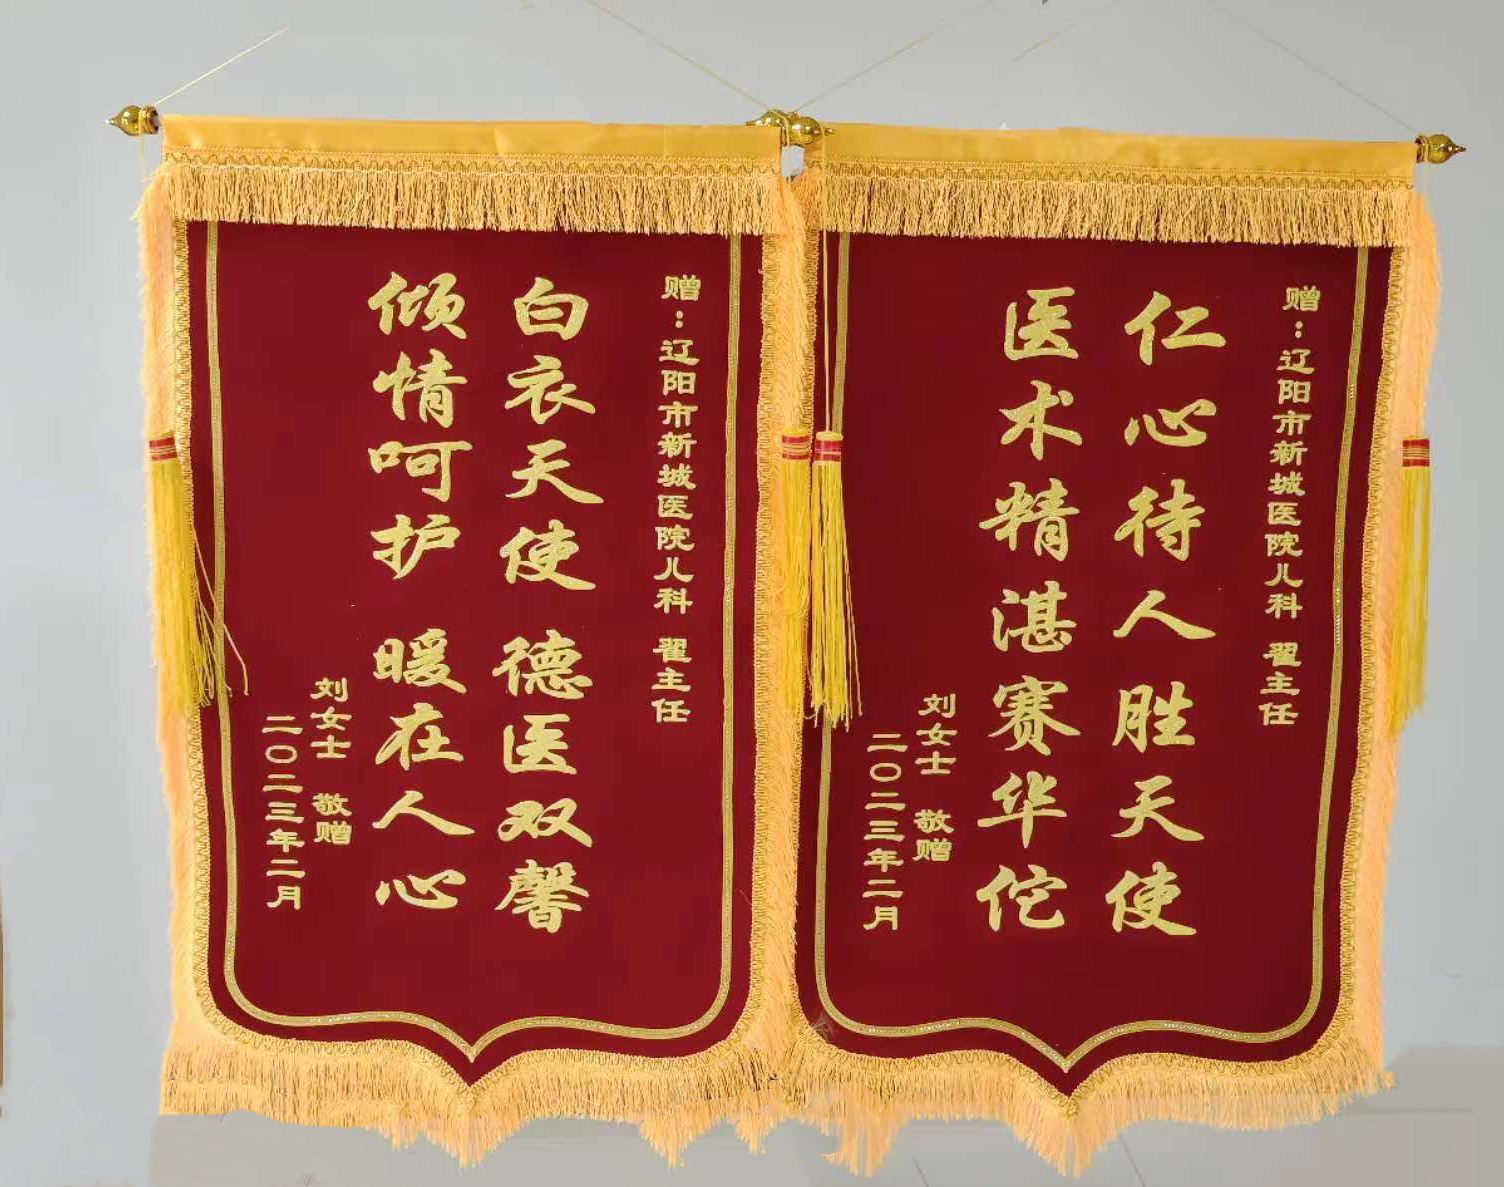 赠：辽阳市新城医院儿科 翟主任
仁心待人胜天使
医术精湛赛华佗
刘女士 敬赠
二〇二三年二月
赠：辽阳市新城医院儿科 翟主任
白衣天使 德医双馨
倾情呵护 暖在人心
刘女士 敬赠
二〇二三年二月